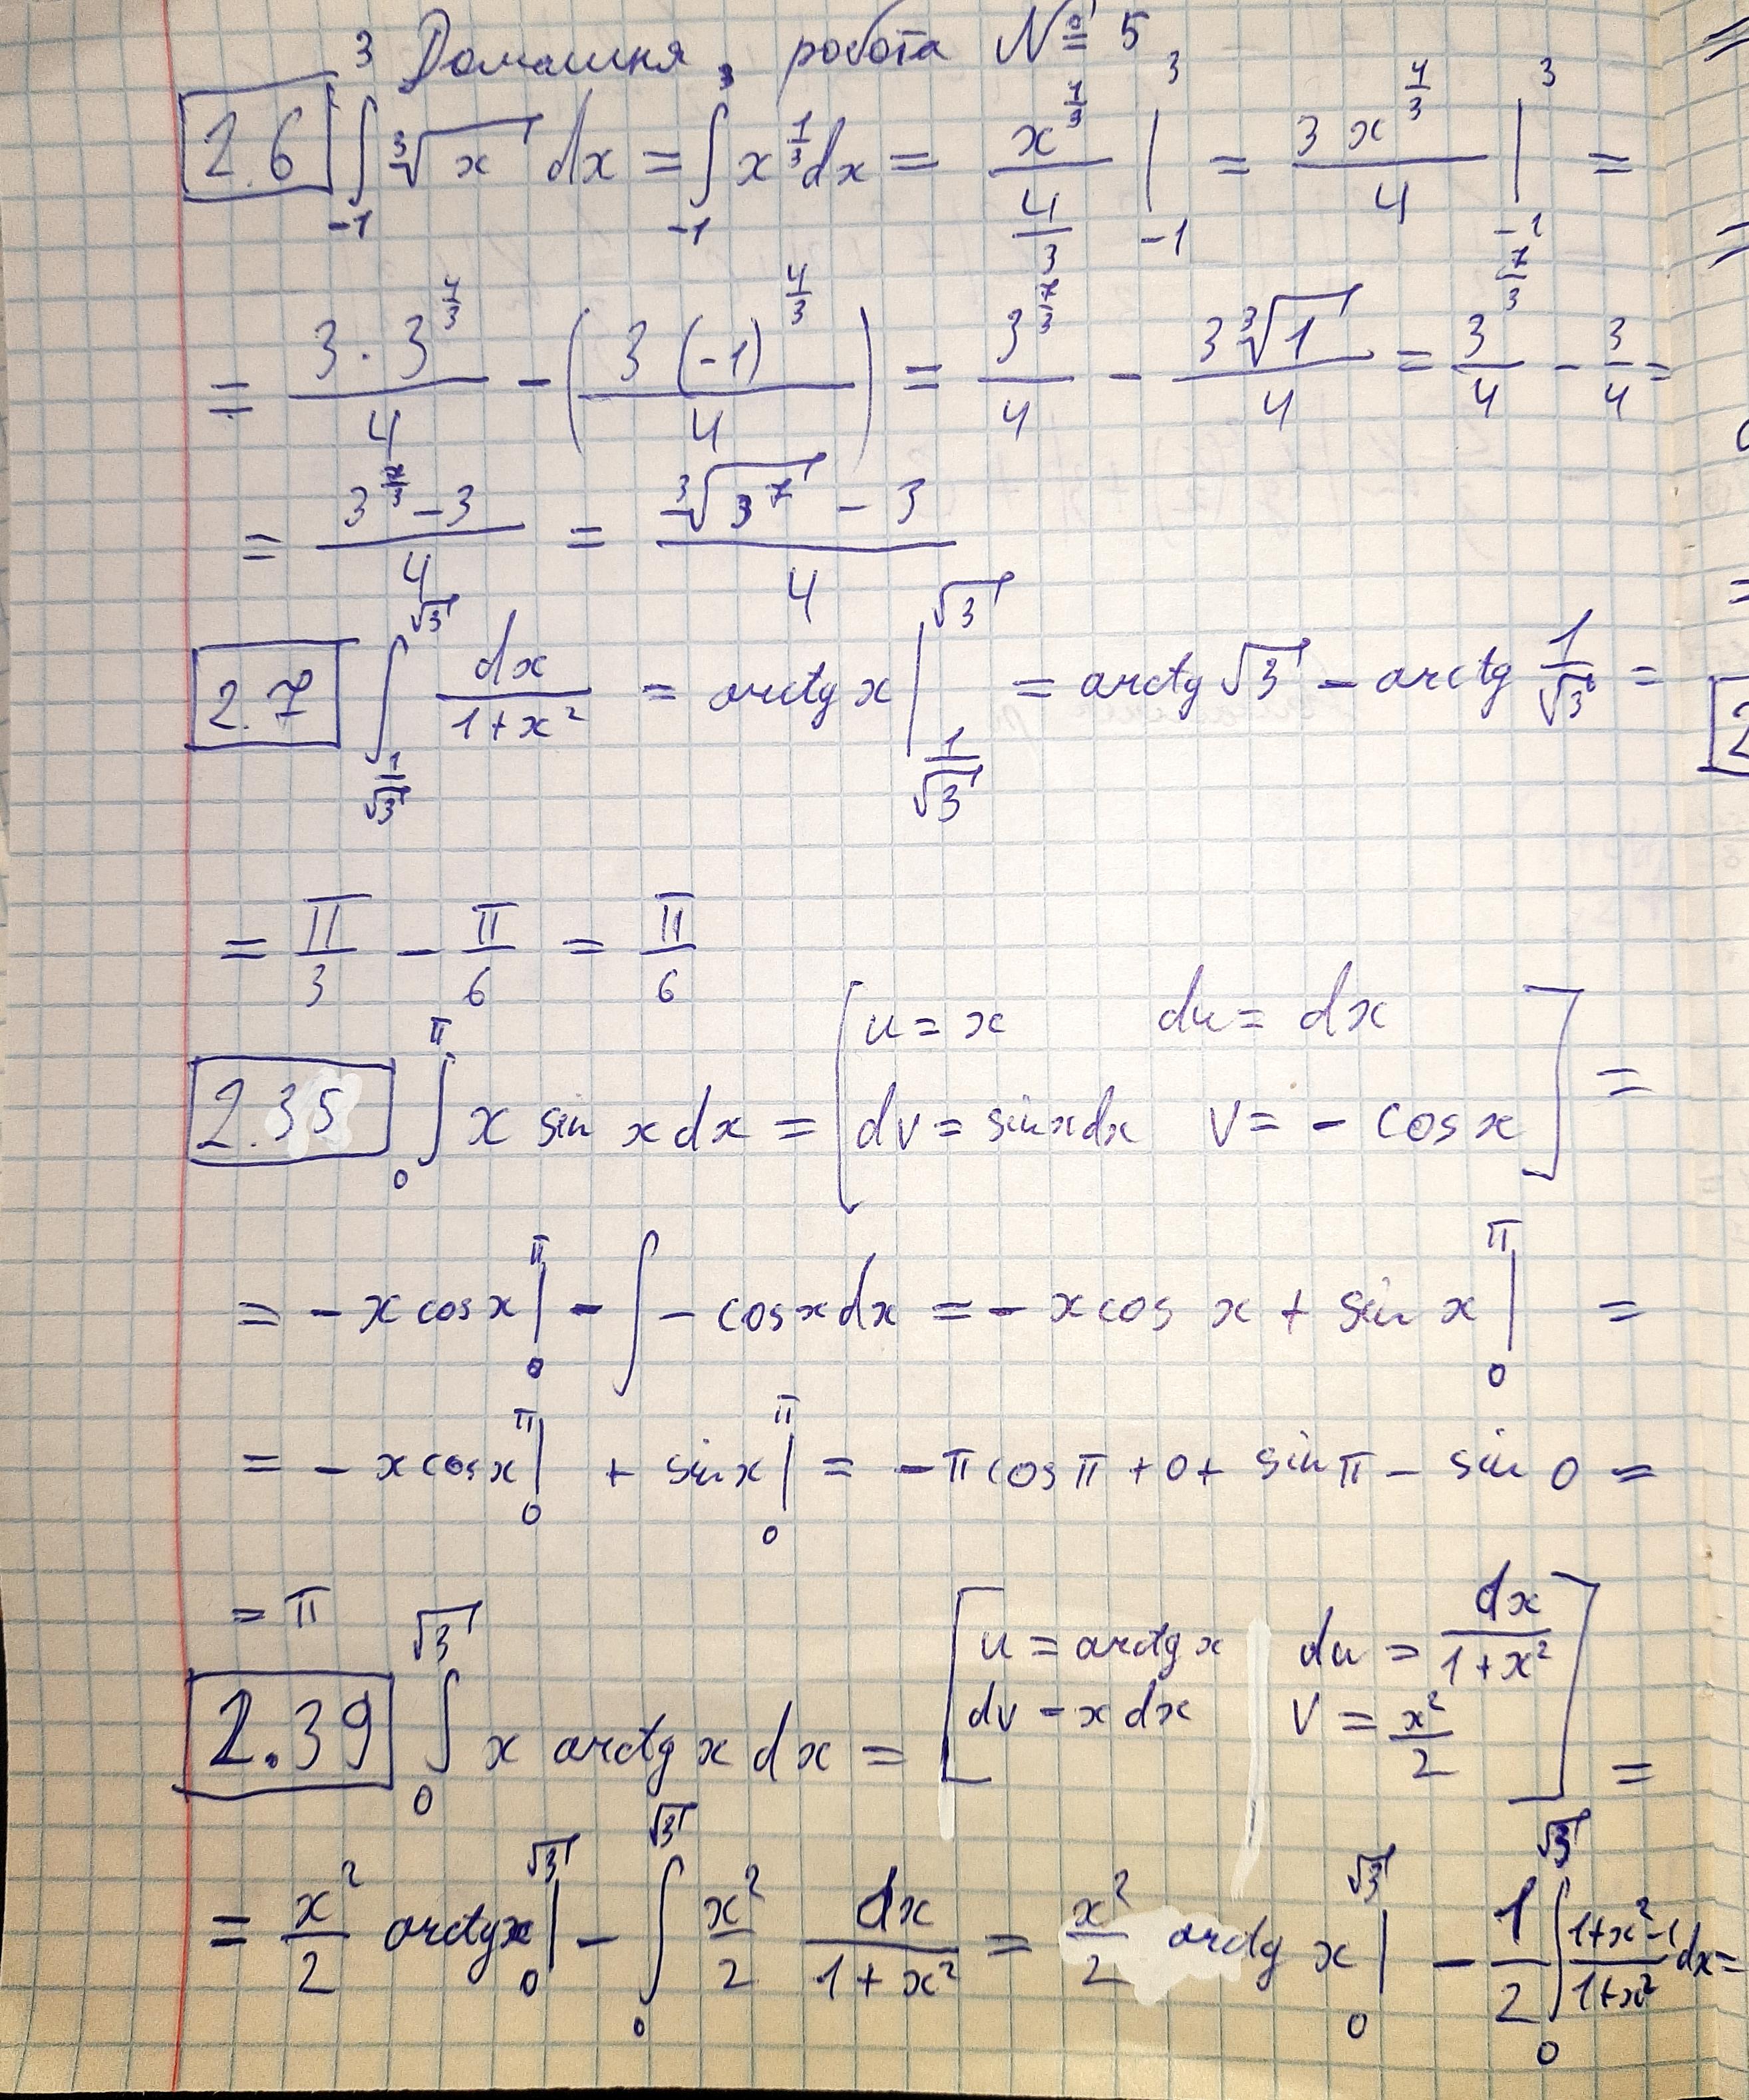 Домашня робота № 5
2.6 ∫_{-1}^{3} ∛x dx = ∫_{-1}^{3} x^{1/3} dx = x^{4/3}/(4/3) |_{-1}^{3} = 3x^{4/3}/4 |_{-1}^{3} =
= 3·3^{4/3}/4 - (3(-1)^{4/3}/4) = 3^{7/3}/4 - 3∛1/4 = 3^{7/3}/4 - 3/4 =
= (3^{7/3} - 3)/4 = (∛(3^7) - 3)/4
2.7 ∫_{1/√3}^{√3} dx/(1+x²) = arctg x |_{1/√3}^{√3} = arctg √3 - arctg 1/√3 =
= π/3 - π/6 = π/6
2.35 ∫_{0}^{π} x sin x dx = [u = x du = dx
dv = sin x dx v = - cos x] =
= - x cos x |_{0}^{π} - ∫ - cos x dx = - x cos x + sin x |_{0}^{π} =
= - x cos x |_{0}^{π} + sin x |_{0}^{π} = - π cos π + 0 + sin π - sin 0 =
= π
2.39 ∫_{0}^{√3} x arctg x dx = [u = arctg x du = dx/(1+x²)
dv = x dx v = x²/2] =
= x²/2 arctg x |_{0}^{√3} - ∫_{0}^{√3} x²/2 dx/(1+x²) = x²/2 arctg x |_{0}^{√3} - 1/2 ∫_{0}^{√3} (1+x²-1)/(1+x²) dx =